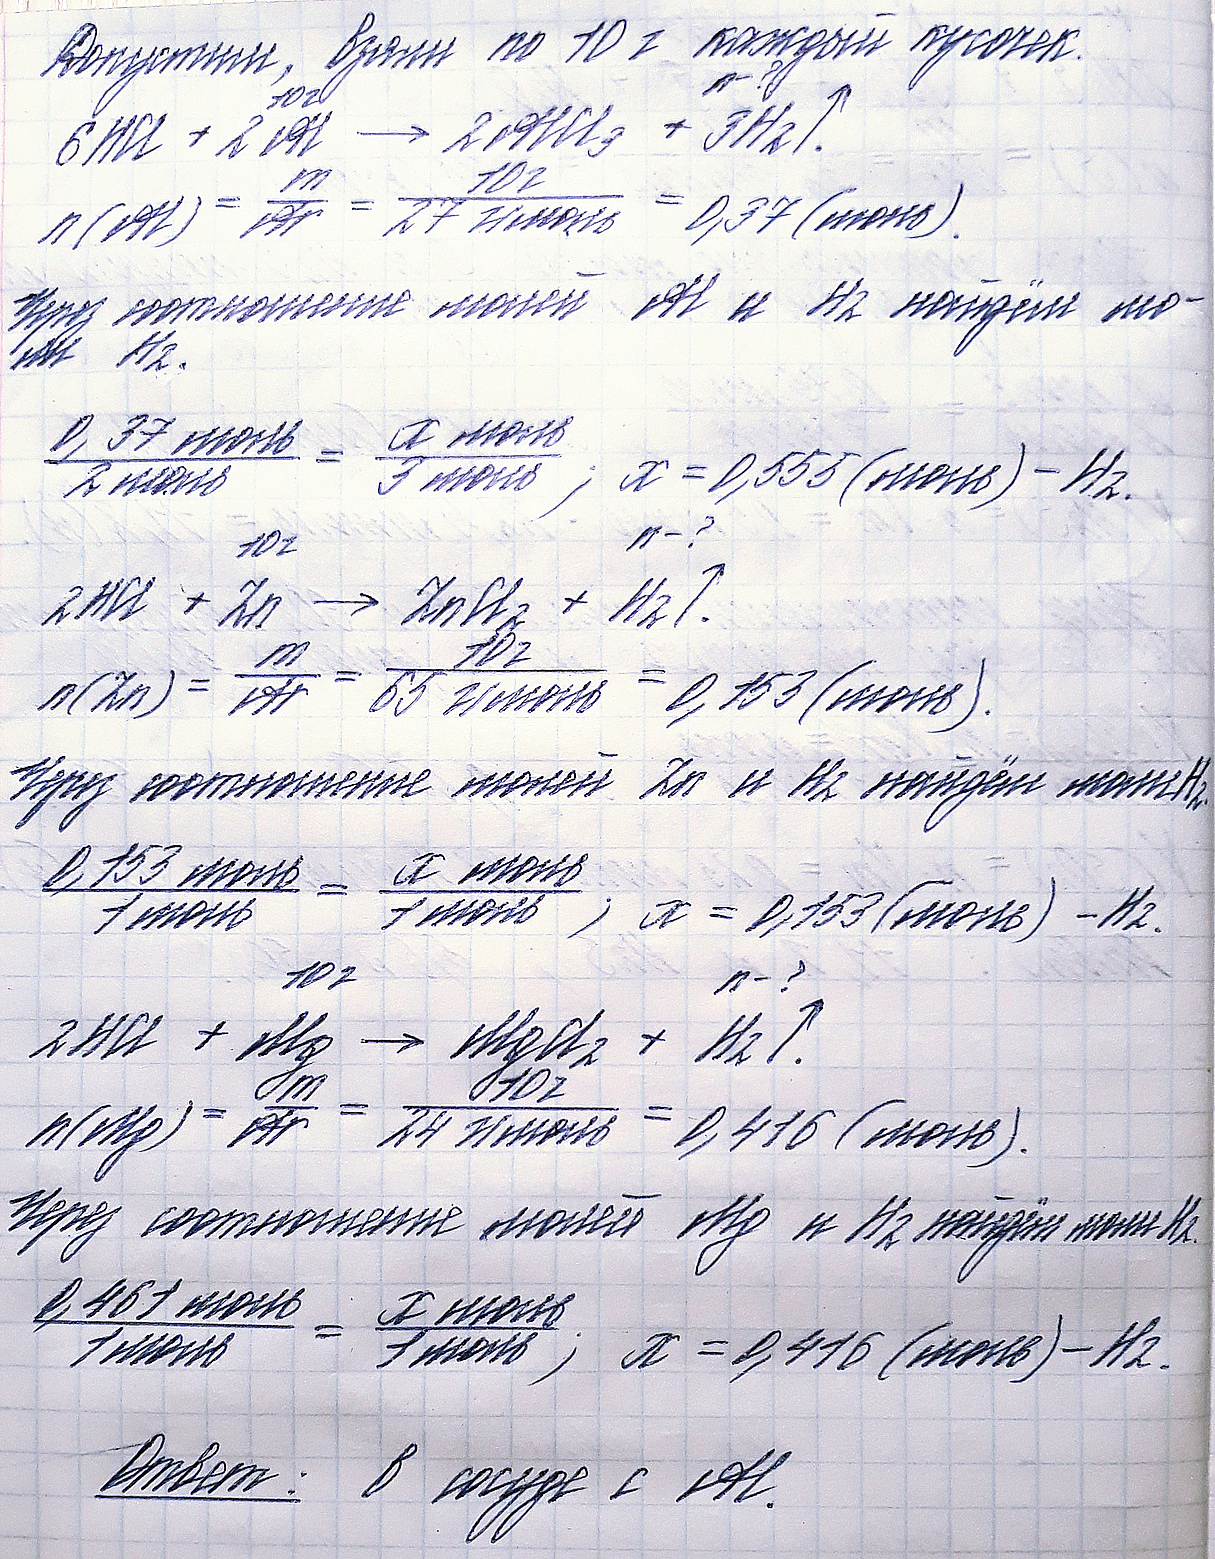 Допустим, взяли по 10 г каждый кусочек.
10г n-?
6HCl + 2Al → 2AlCl₃ + 3H₂↑.
n(Al) = m/Ar = 10г/27 г/моль = 0,37 (моль).
Через соотношение молей Al и H₂ найдём мо-
ли H₂.
0,37 моль/2 моль = x моль/3 моль; x = 0,555 (моль) – H₂.
10г n-?
2HCl + Zn → ZnCl₂ + H₂↑.
n(Zn) = m/Ar = 10г/65 г/моль = 0,153 (моль).
Через соотношение молей Zn и H₂ найдём моли H₂.
0,153 моль/1 моль = x моль/1 моль; x = 0,153 (моль) – H₂.
10 г n-?
2HCl + Mg → MgCl₂ + H₂↑.
n(Mg) = m/Ar = 10г/24 г/моль = 0,416 (моль).
Через соотношение молей Mg и H₂ найдём моли H₂.
0,461 моль/1 моль = x моль/1 моль; x = 0,416 (моль) – H₂.
Ответ: в сосуде с Al.